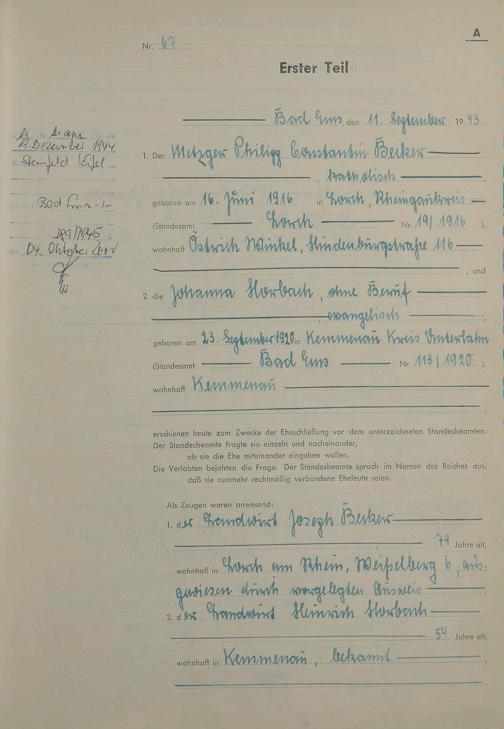 A
Nr. 67
Erster Teil
Bad Ems, den 11. September 1943.
1. Der Metzger Philipp Constantin Becker
katholisch
geboren am 16. Juni 1916 in Lorch, Rheingaukreis
(Standesamt Lorch Nr. 19/1916 ),
wohnhaft Östrich Winkel, Hindenburgstraße 116
, und
2. die Johanna Horbach, ohne Beruf
evangelisch
geboren am 23. September 1920 in Kemmenau Kreis Unterlahn
(Standesamt Bad Ems Nr. 113/1920 ),
wohnhaft Kemmenau
erschienen heute zum Zwecke der Eheschließung vor dem unterzeichneten Standesbeamten.
Der Standesbeamte fragte sie einzeln und nacheinander,
ob sie die Ehe miteinander eingehen wollen.
Die Verlobten bejahten die Frage. Der Standesbeamte sprach im Namen des Reiches aus,
daß sie nunmehr rechtmäßig verbundene Eheleute seien.
Als Zeugen waren anwesend:
1. der Landwirt Joseph Becker
74 Jahre alt,
wohnhaft in Lorch am Rhein, Weißelberg 6, aus-
gewiesen durch vorgelegten Ausweis
2. der Landwirt Heinrich Horbach
54 Jahre alt,
wohnhaft in Kemmenau, bekannt
Dezember 1944
Eifel
Bad
04. Oktober